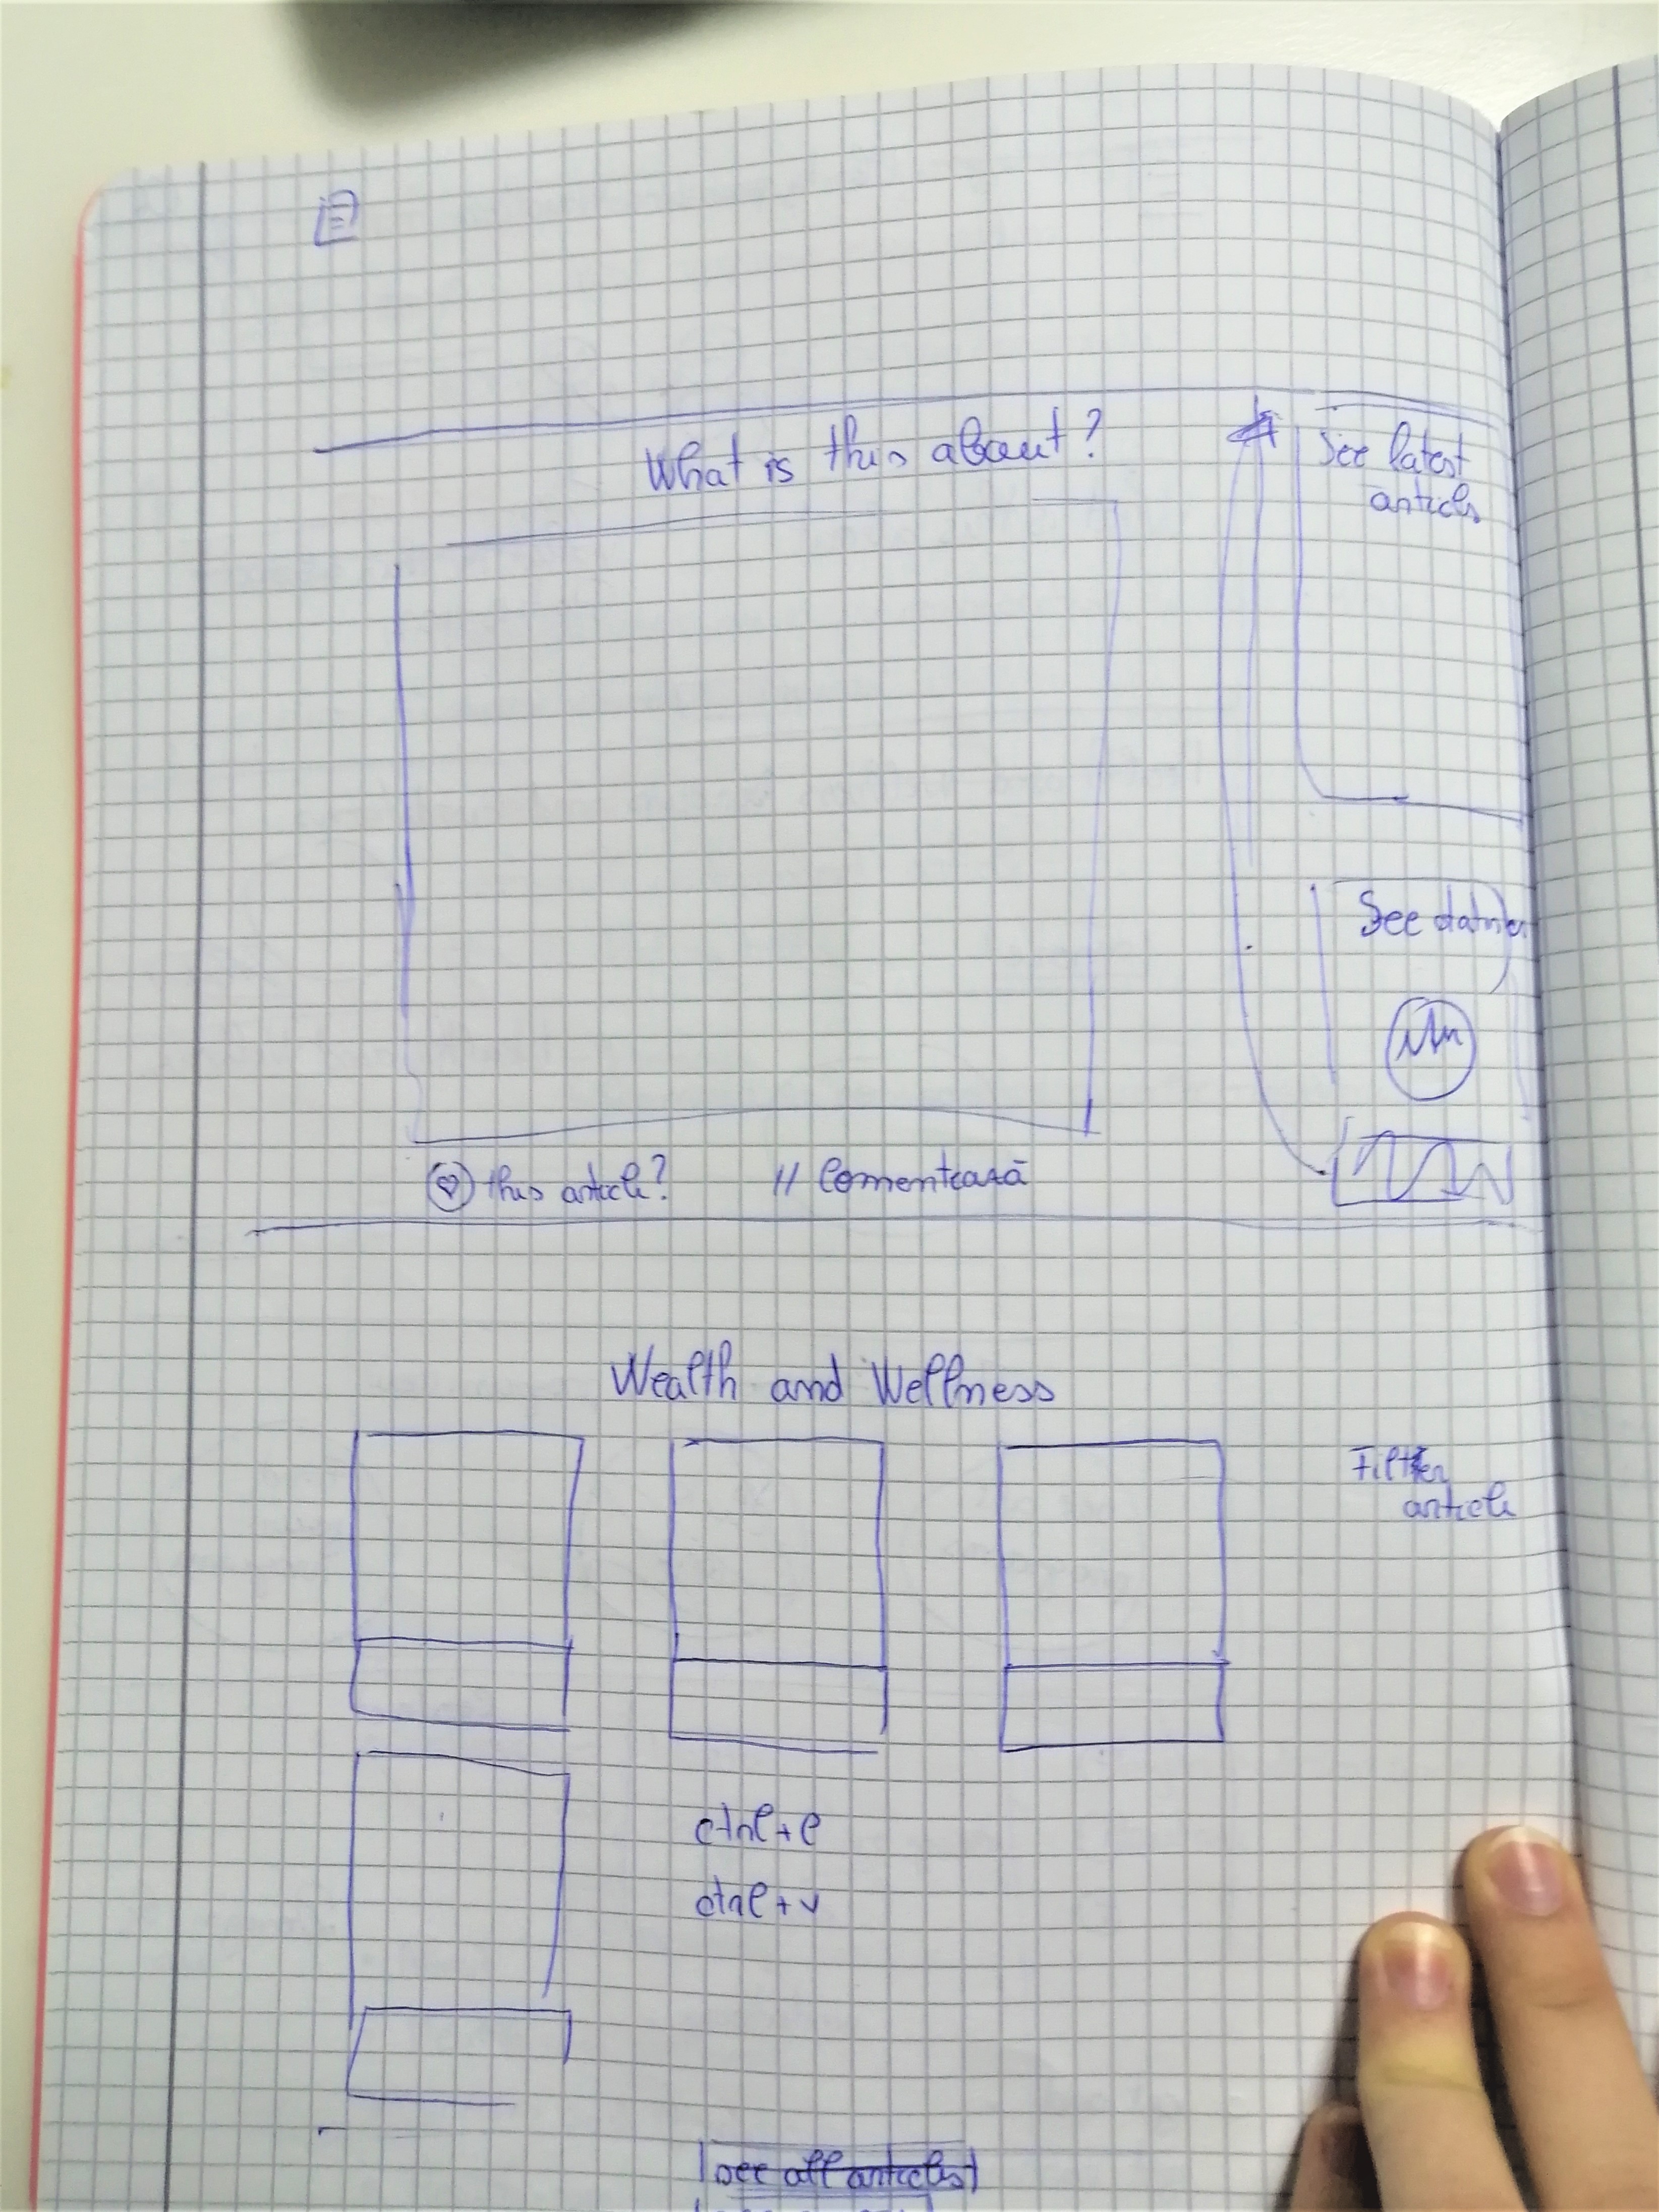 What is this about?
See latest
articls
See
this article?
// Comentează
Wealth and Wellness
Filter
article
ctrl+c
ctrl+v
see all articles